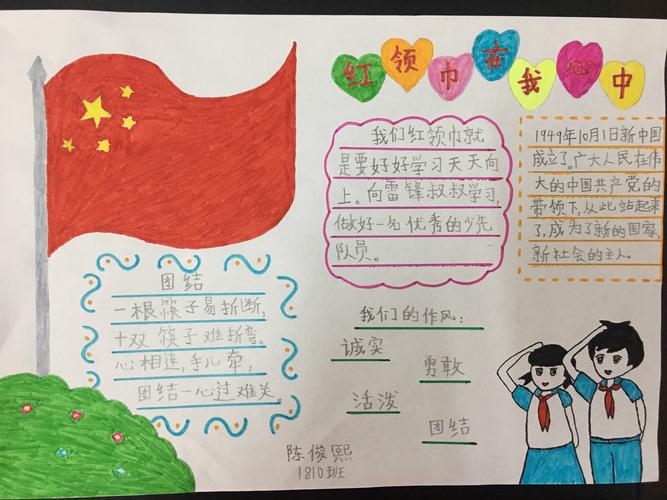 红领巾在我心中
我们红领巾就
是要好好学习天天向
上。向雷锋叔叔学习,
做好一名优秀的少先
队员。
1949年10月1日新中国
成立了。广大人民在伟
大的中国共产党的
带领下,从此站起来
了,成为了新的国家,
新社会的主人。
团结
一根筷子易折断,
十双筷子难折弯。
心相连,手儿牵,
团结一心过难关。
我们的作风:
诚实
勇敢
活泼
团结
陈俊熙
1810班